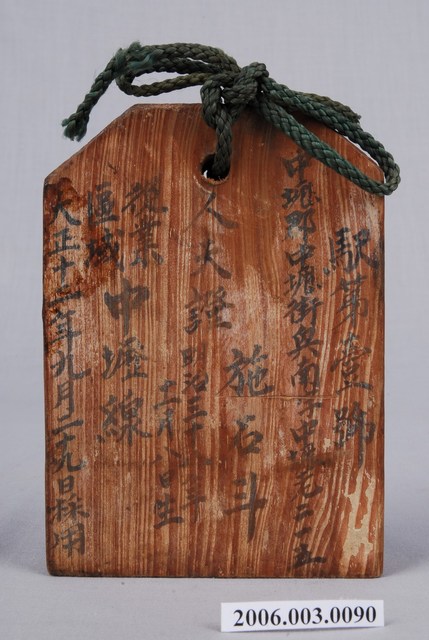 駅第壹號
中壢郡中壢街興南字中壢老二一五
人夫證 施石斗
明治三十八年
十一月八日生
從業
區域 中壢線
大正十二年九月二十九日採用
2006.003.0090